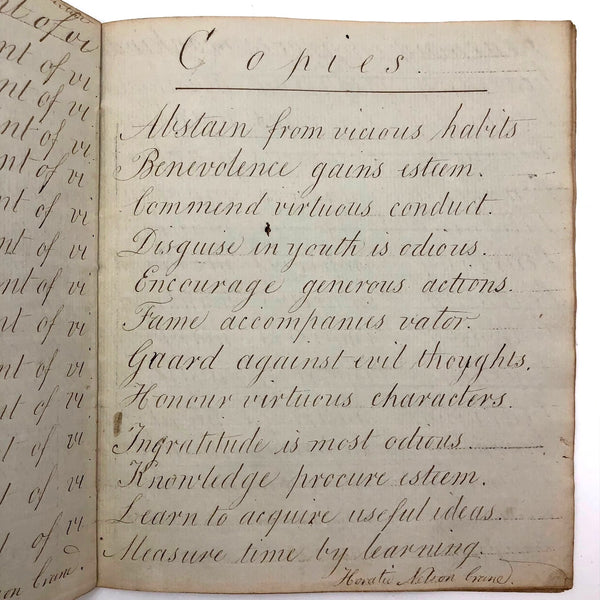 nt of vi
nt of vi
nt of vi
nt of vi
nt of vi
nt of vi
nt of vi
nt of vi
nt of vi
nt of vi
nt of vi
nt of vi
nt of vi
son Crane.
Copies.
Abstain from vicious habits
Benevolence gains esteem.
Commend virtuous conduct.
Disguise in youth is odious.
Encourage generous actions.
Fame accompanies valor.
Guard against evil thoughts.
Honour virtuous characters.
Ingratitude is most odious
Knowledge procure esteem.
Learn to acquire useful ideas.
Measure time by learning.
Horatio Nelson Crane.